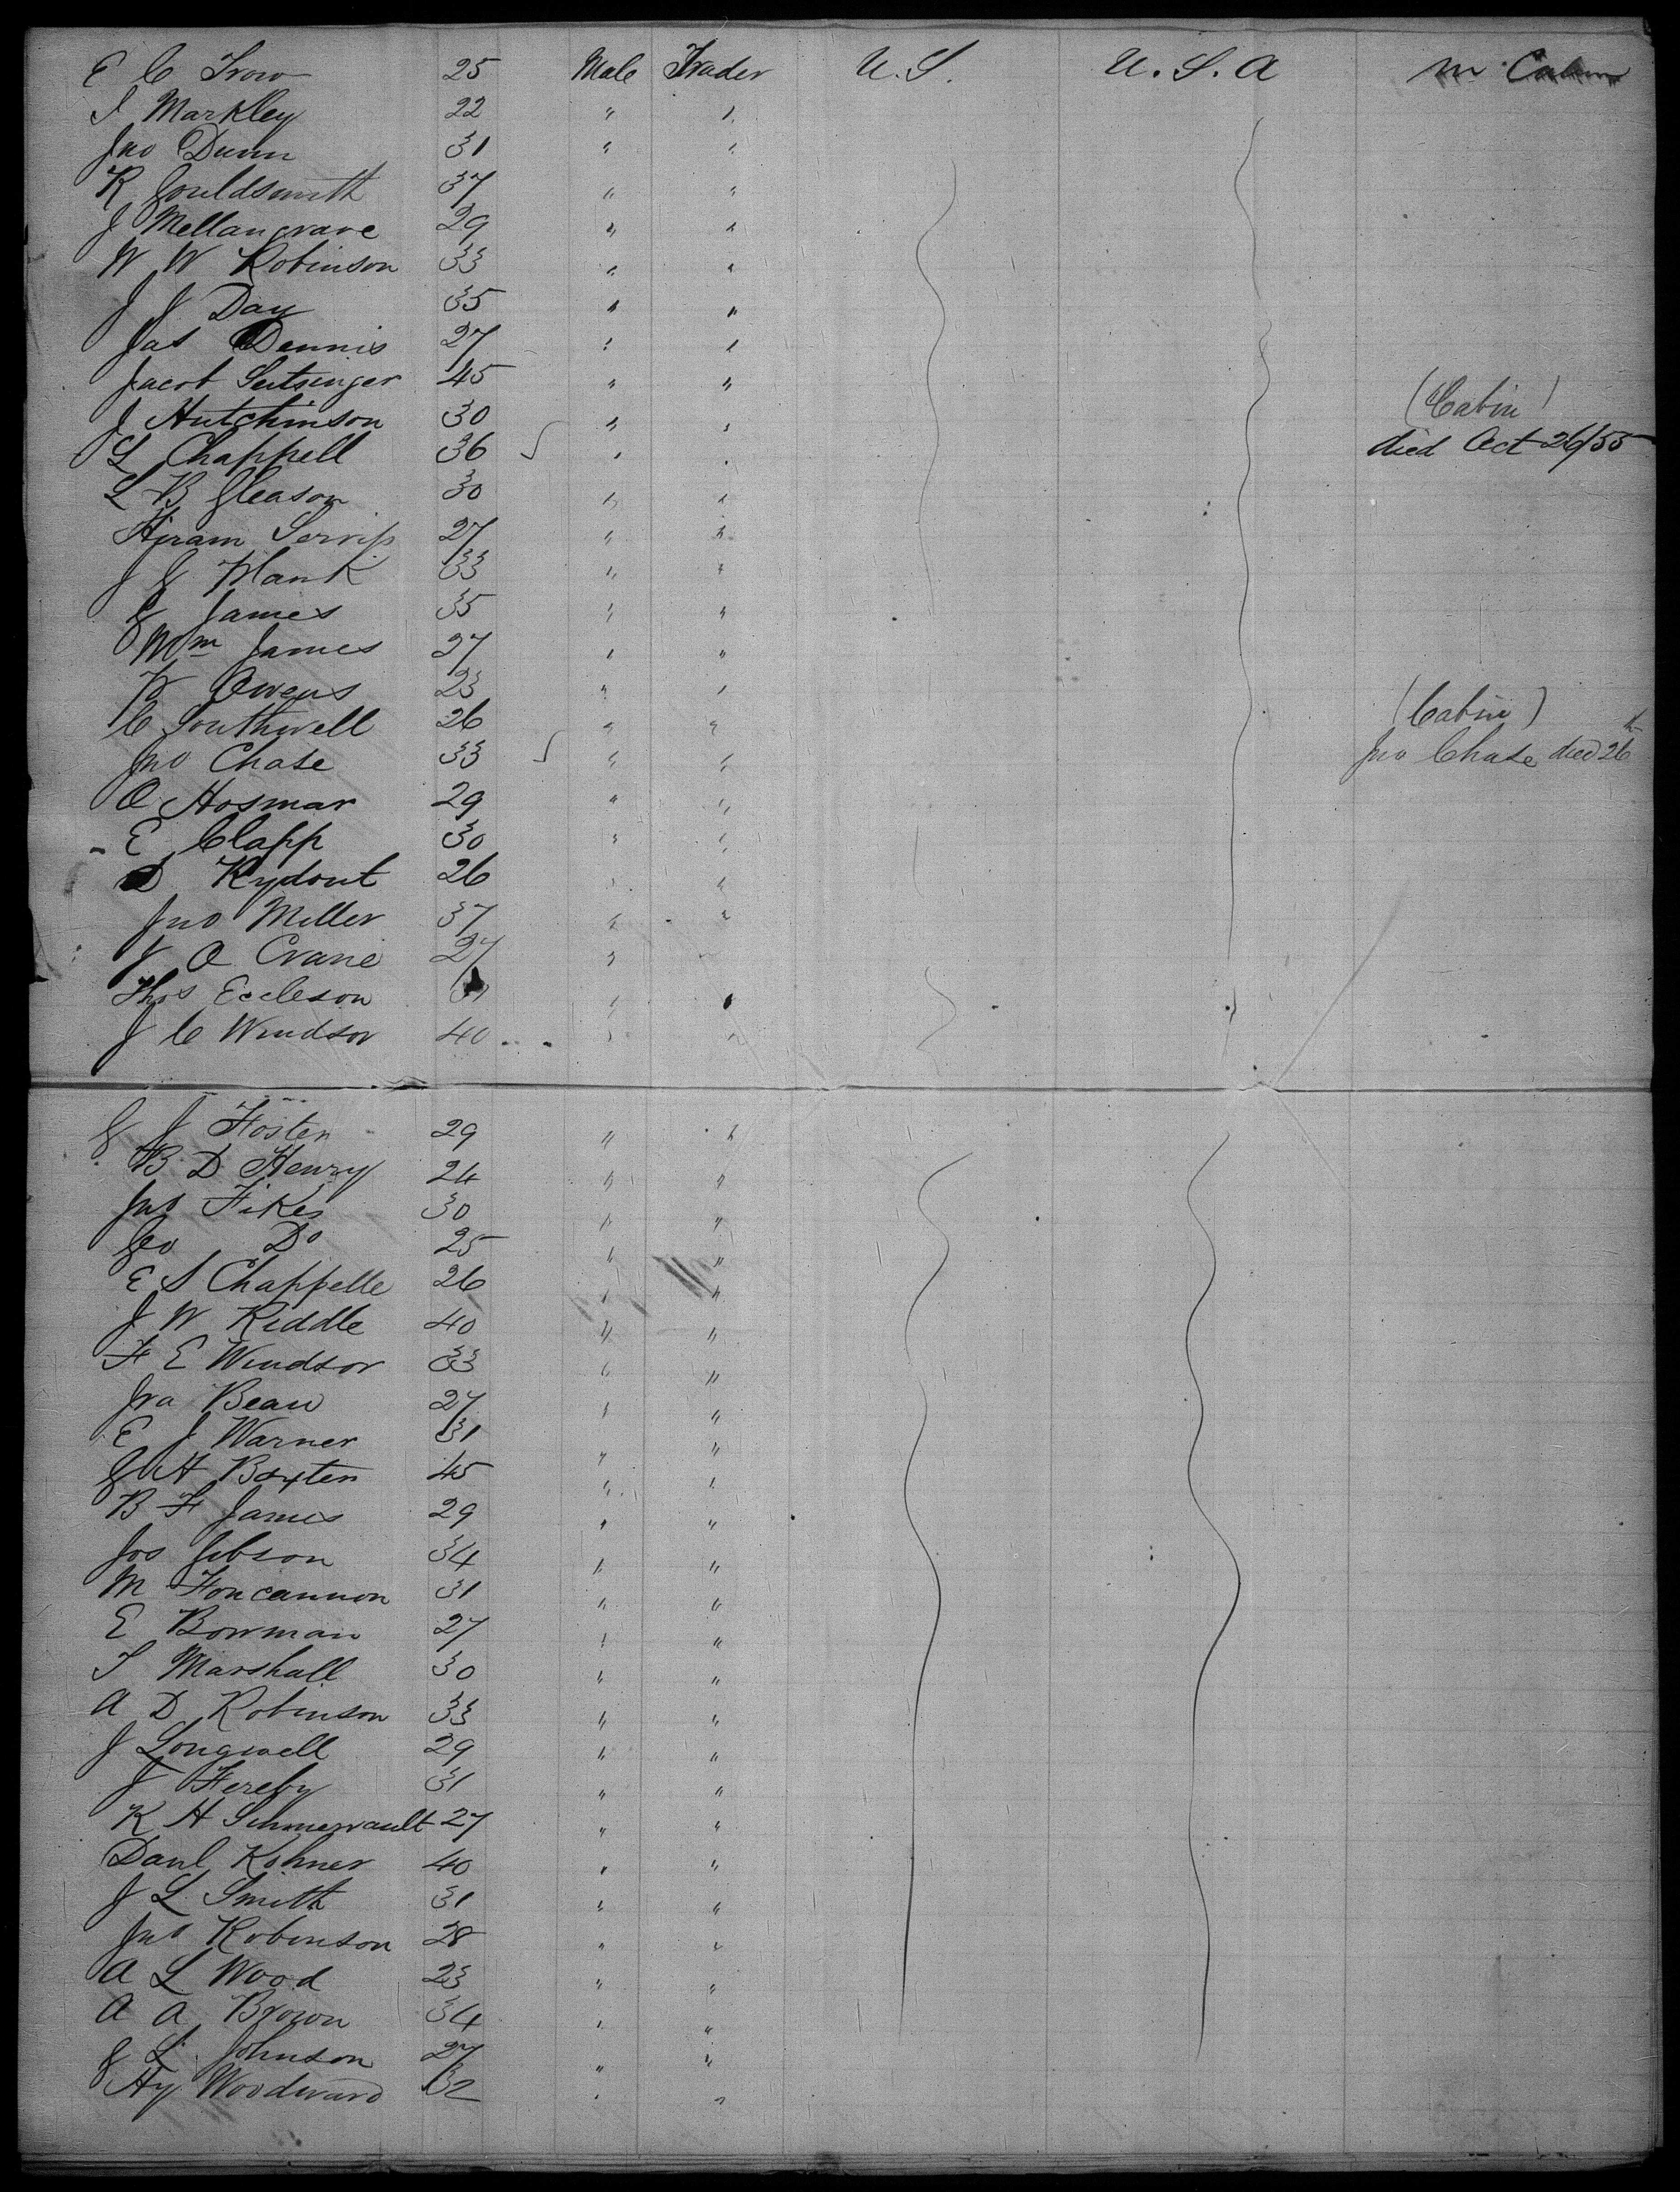 E C Trow 25 Male Trader U.S. U.S.A in Cabin
I Markley 22 " "
Jno Dunn 31 " "
R Gouldsmith 37 " "
J Mellangrave 29 " "
W W Robinson 33 " "
J J Day 35 " "
Jas Dennis 27 " "
Jacob Seitsinger 45 " "
J Hutchinson 30 " " (Cabin)
L Chappell 36 " " died Oct 26/55
L B Gleason 30 " "
Hiram Servip 27 " "
J G Plank 33 " "
G James 35 " "
Wm James 27 " "
W Owens 23 " "
C Southwell 26 " " (Cabin)
Jno Chase 33 " " Jno Chase died 26th
O Hosmar 29 " "
E Clapp 30 " "
D Rydout 26 " "
Jno Miller 37 " "
J O Crane 27 "
Thos Eccleson 31 " "
J C Windsor 40 " "
G J Foster 29 " "
B D Henry 24 " "
Jno Fikes 30 " "
Geo Do 25 " "
E S Chappelle 26 " "
J W Riddle 40 " "
F E Windsor 33 " "
Ira Bean 27 " "
E J Warner 31 " "
G H Baxter 45 " "
B F James 29 " "
Jos Gibson 34 " "
M Foncannon 31 " "
E Bowman 27 " "
S Marshall 30 " "
A D Robinson 33 " "
J Longwell 29 " "
J Fereby 31 " "
K H 27 " "
Danl Kohner 40 " "
J L Smith 31 " "
Jno Robinson 28 " "
A L Wood 23 " "
A A Brown 34 " "
G L Johnson 27 " "
Hy Woodward 32 " "